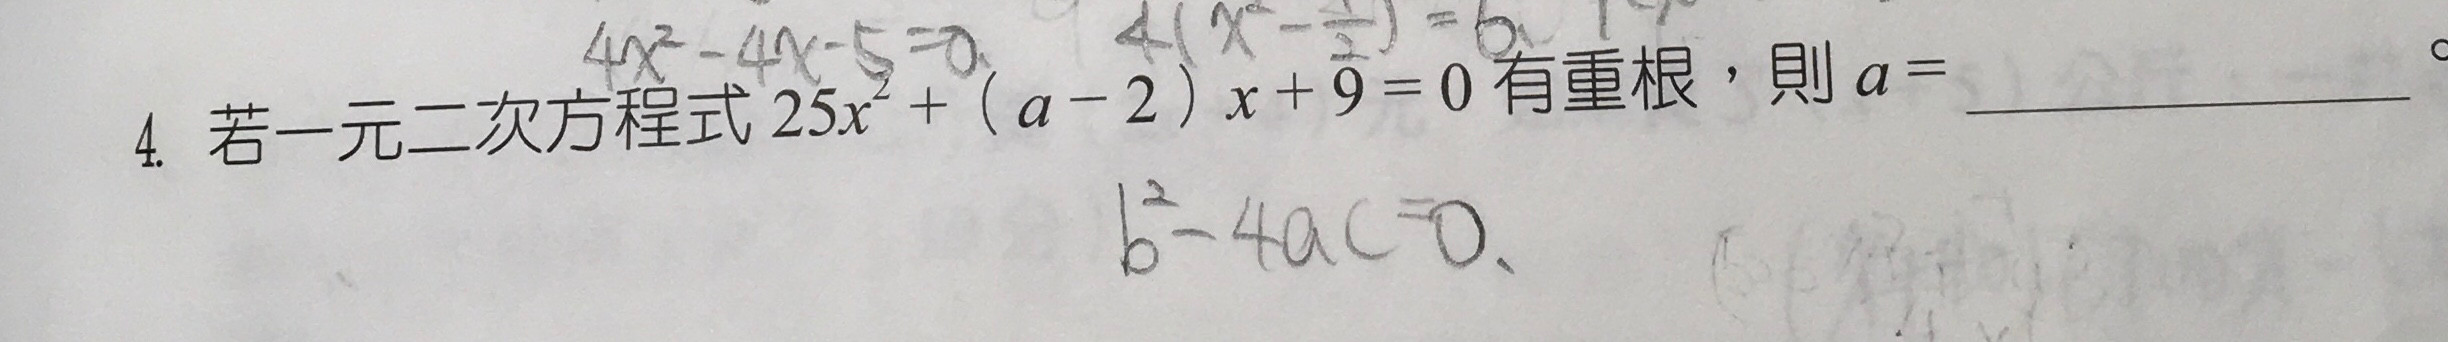 4x²-4x-5=0
4. 若一元二次方程式 25x²+(a-2)x+9=0 有重根,則 a=________。
b²-4ac=0、